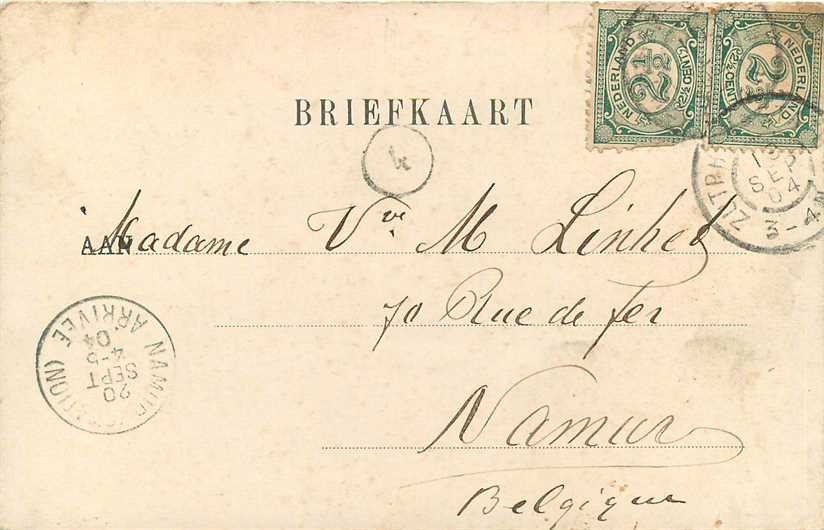 NEDERLAND
2½
CENT
NEDERLAND
2½
CENT
BRIEFKAART
4
ZUTPH
SEP
04
3-4N
AAN
Madame Vve M Linhet
70 Rue de Fer
Namur
Belgique
NAMUR (STATION)
20
SEPT
4-5
04
ARRIVEE